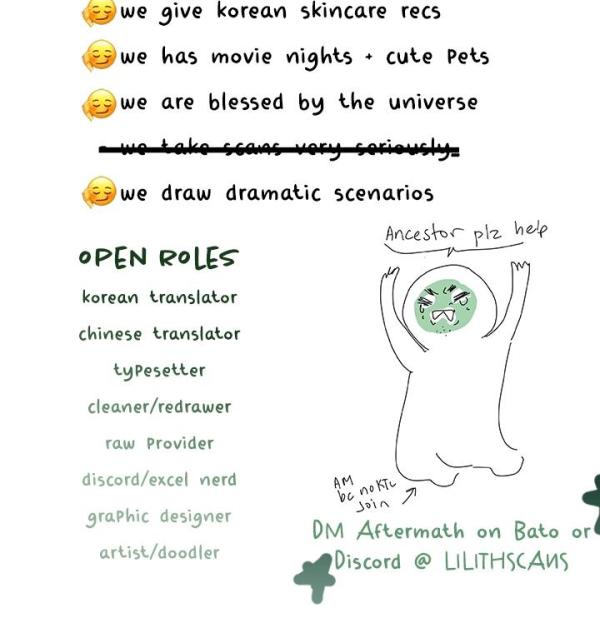 we give korean skincare recs
we has movie nights + cute Pets
we are blessed by the universe
we take scans very seriously.
we draw dramatic scenarios
Ancestor plz help
OPEN ROLES
korean translator
chinese translator
tyPesetter
cleaner/redrawer
raw Provider
discord/excel nerd
graPhic designer
artist/doodler
AM
bc no KTL
join
DM Aftermath on Bato or
Discord @ LILITHSCANS